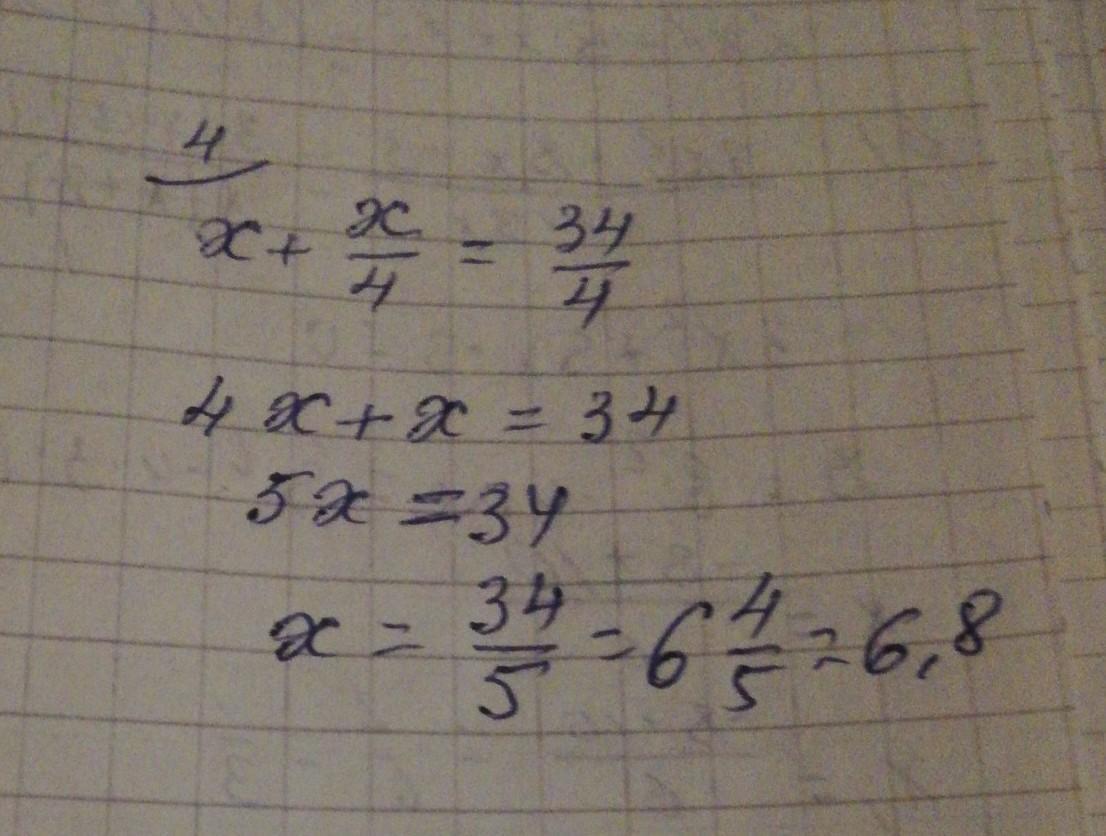 4
x + x/4 = 34/4
4x + x = 34
5x = 34
x = 34/5 = 6 4/5 = 6,8